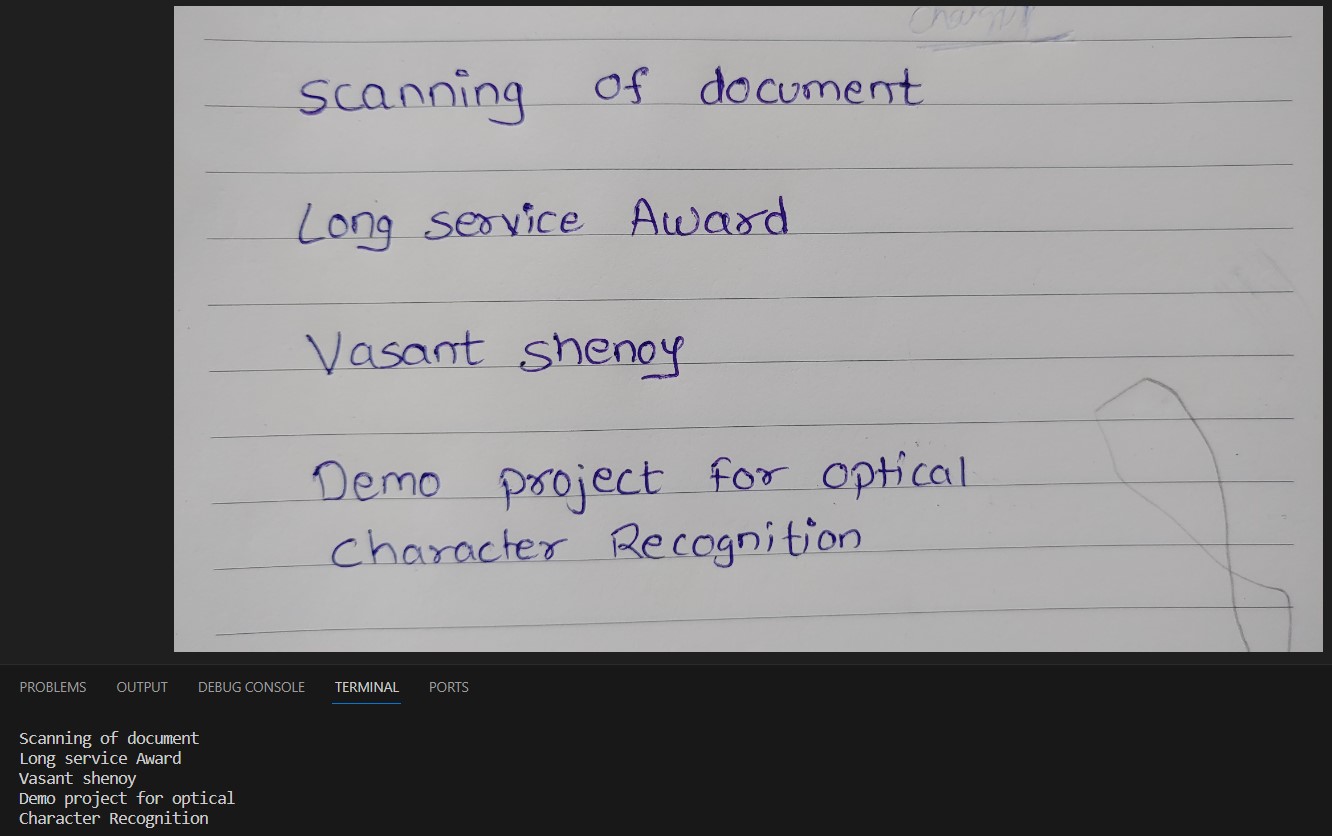 Scanning of document
Long service Award
Vasant shenoy
Demo project for optical
Character Recognition
PROBLEMS OUTPUT DEBUG CONSOLE TERMINAL PORTS
Scanning of document
Long service Award
Vasant shenoy
Demo project for optical
Character Recognition